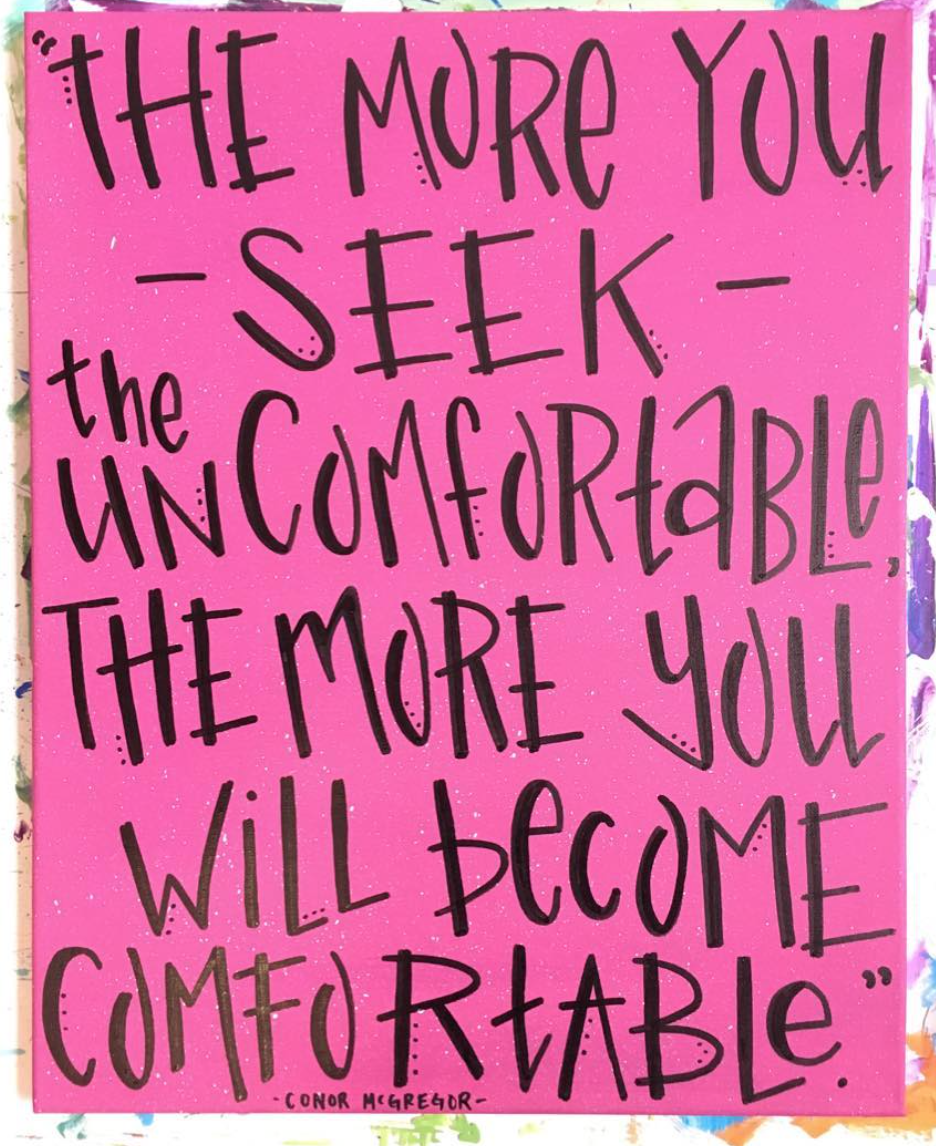 “THE MORe YOU
- SEEK -
the
UNCOMfORtaBLe,
THE MORE YOU
WiLL beCOME
COMFORtABLe.”
- CONOR McGREGOR -